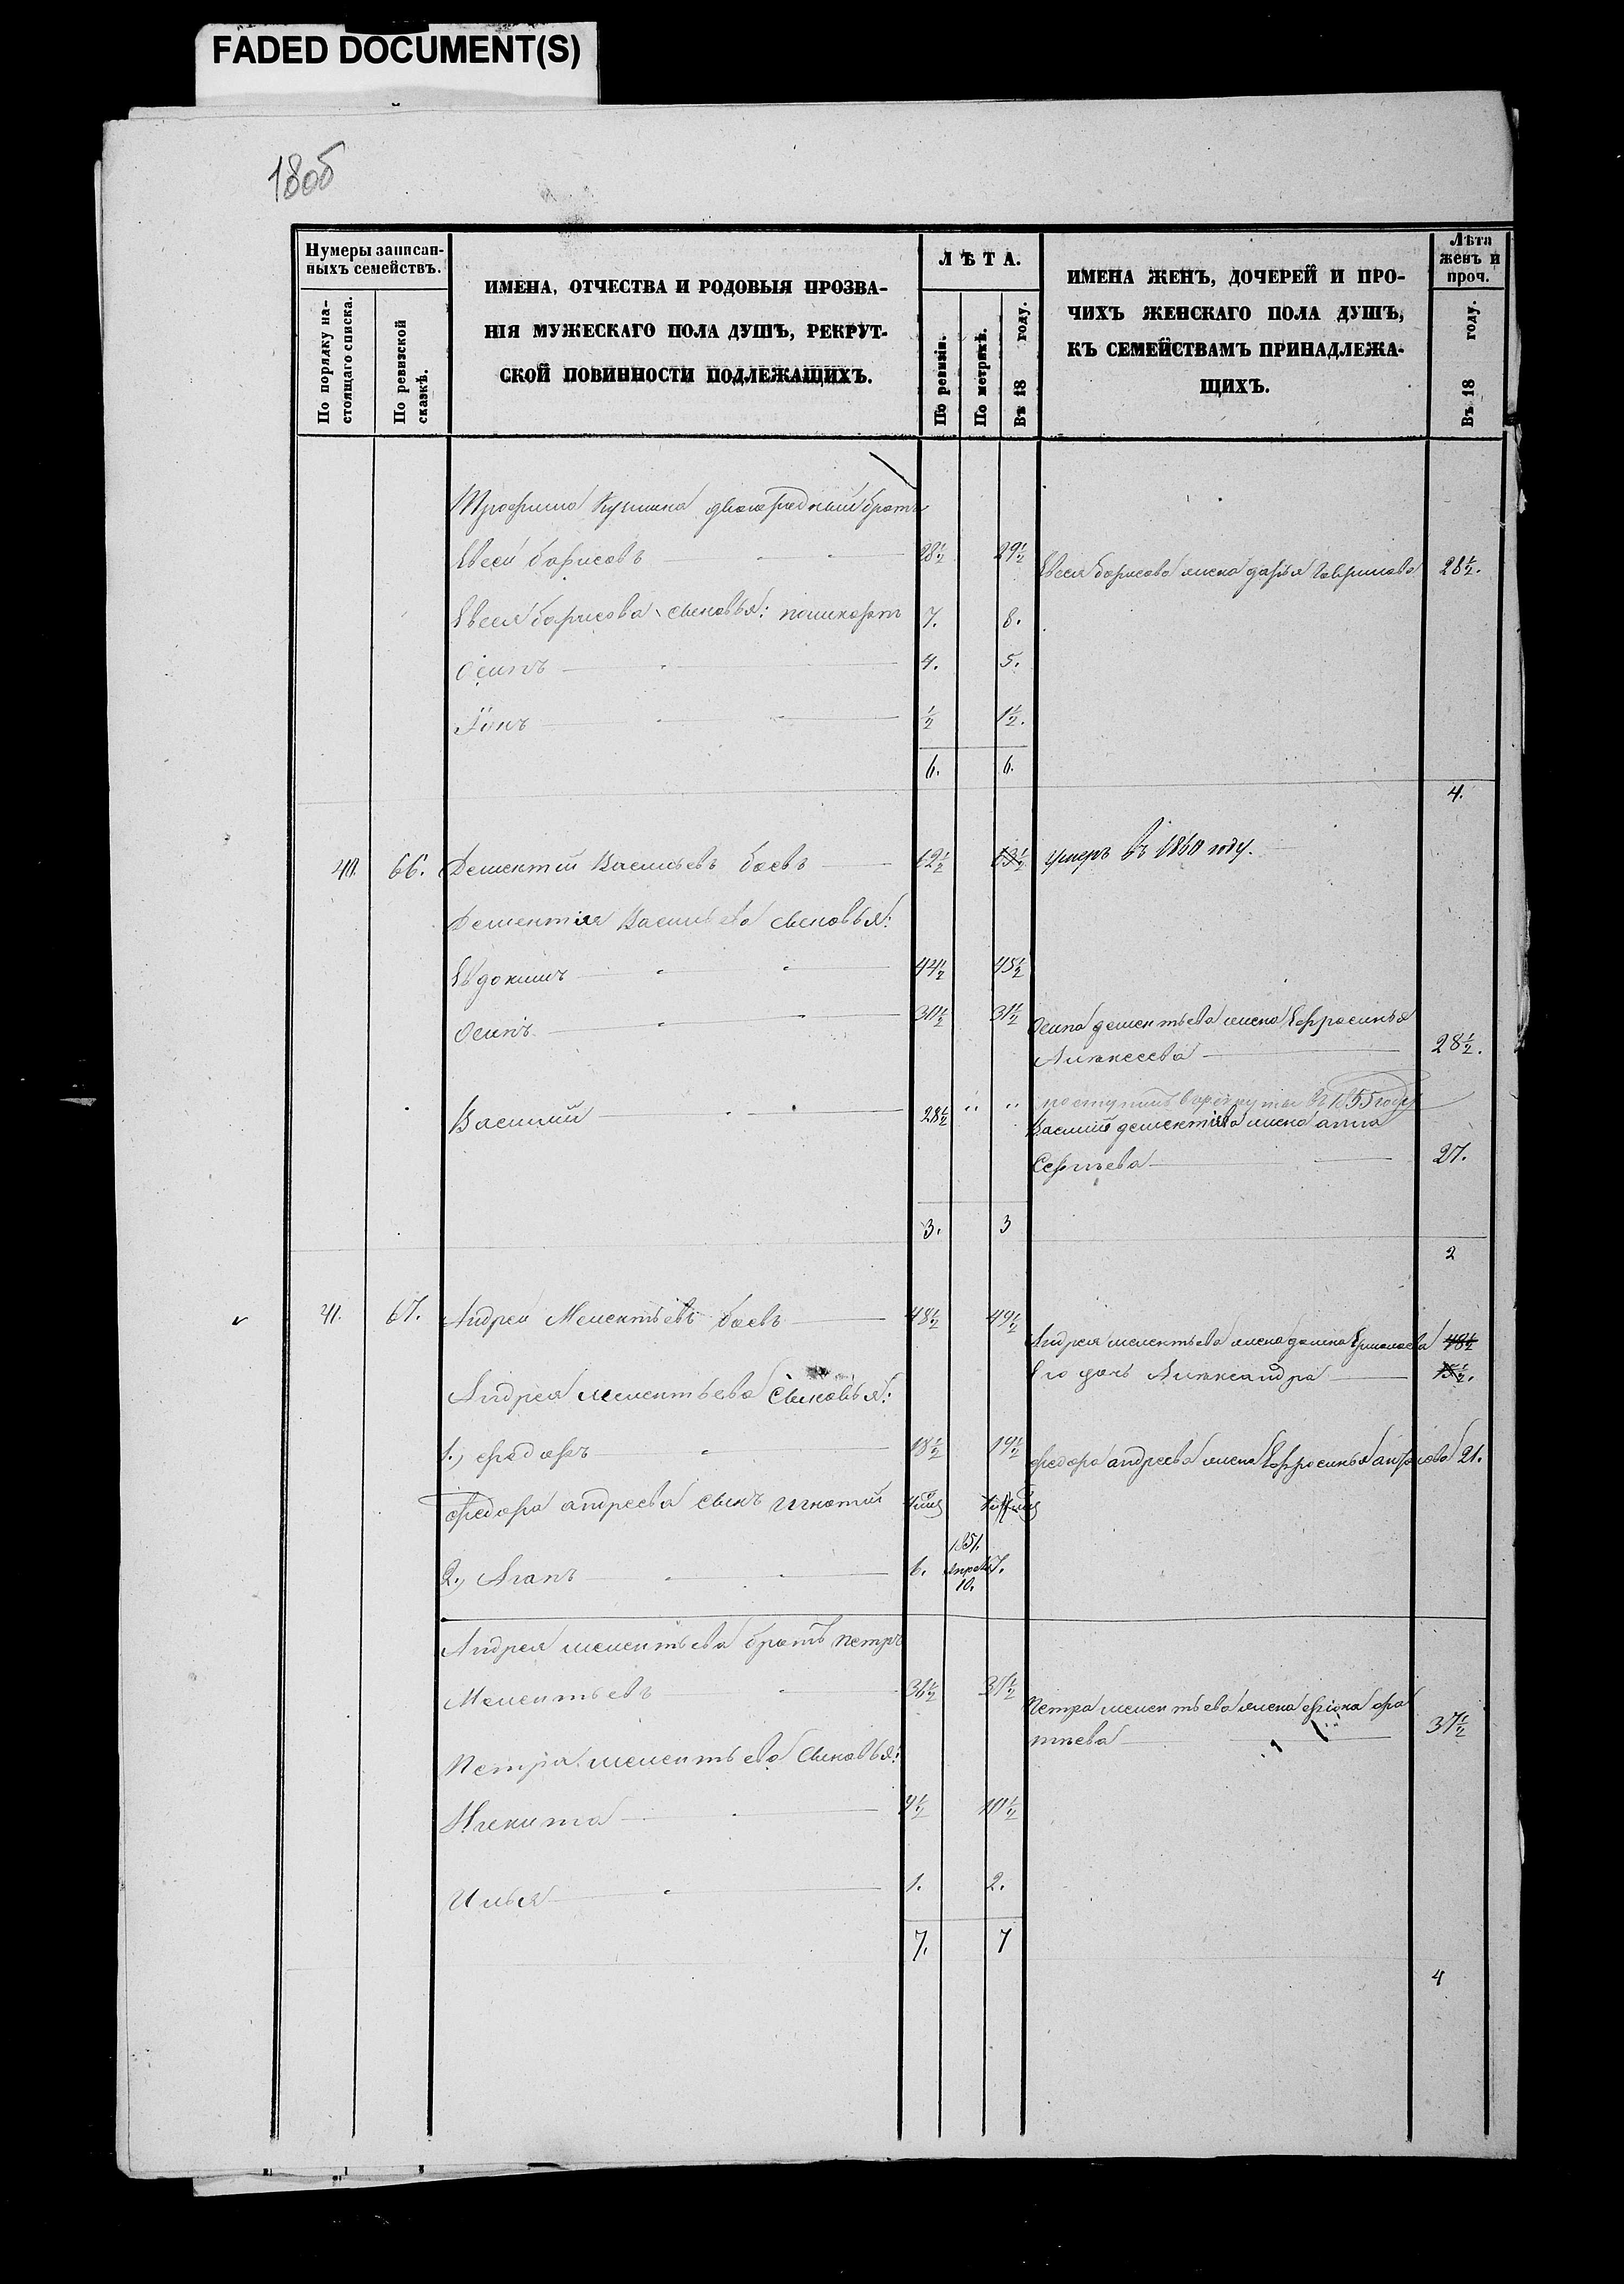 FADED DOCUMENT(S)
180б
Нумеры записан-
ныхъ семействъ.
По порядку на-
стоящаго списка.
По ревизской
сказкѣ.
ИМЕНА, ОТЧЕСТВА И РОДОВЫЯ ПРОЗВА-
НІЯ МУЖЕСКАГО ПОЛА ДУШЪ, РЕКРУТ-
СКОЙ ПОВИННОСТИ ПОДЛЕЖАЩИХЪ.
ЛѢТА.
По ревизіи.
По метрикѣ.
Въ 18 году.
ИМЕНА ЖЕНЪ, ДОЧЕРЕЙ И ПРО-
ЧИХЪ ЖЕНСКАГО ПОЛА ДУШЪ,
КЪ СЕМЕЙСТВАМЪ ПРИНАДЛЕЖА-
ЩИХЪ.
Лѣта
женъ и
проч.
Въ 18 году.
Трофима Кузмина двоюродный братъ
Евсей борисовъ 28½ 29½
Евсея борисова жена дарья Гаврилова 28½.
Евсея борисова сыновья: 7. 8.
Осипъ 4. 5.
½ 1½.
6. 6.
4.
40. 66. Дементий Васильевъ баевъ умеръ въ 1860 году.
Дементия Васильева сыновья:
Евдокимъ 44½ 45½
Осипъ 30½ 31½ Осипа дементьева жена Ефросинья
Алексеева 28½.
Василий 28½ " " поступилъ в рекруты въ 1855 году
Василия дементьева жена анна
Сергеева 27.
3. 3
2
41. 67. Андрей Мелентьевъ баевъ 48½ 49½
Андрея мелентьева жена домна Ермолаева 48½
Его дочь Александра 15½.
Андрея мелентьева Сыновья:
1., федоръ 18½ 19½ федора андреева жена Ефросинья 21.
федора андреева сынъ игнатий
2., Агапъ 6. 1851. апреля 10. 7.
Андрея мелентьева братъ петръ
Мелентьевъ 36½ 37½
Петра мелентьева жена
37½
Петра мелентьева Сыновья:
Никита 9½ 10½
Илья 1. 2.
7. 7
4